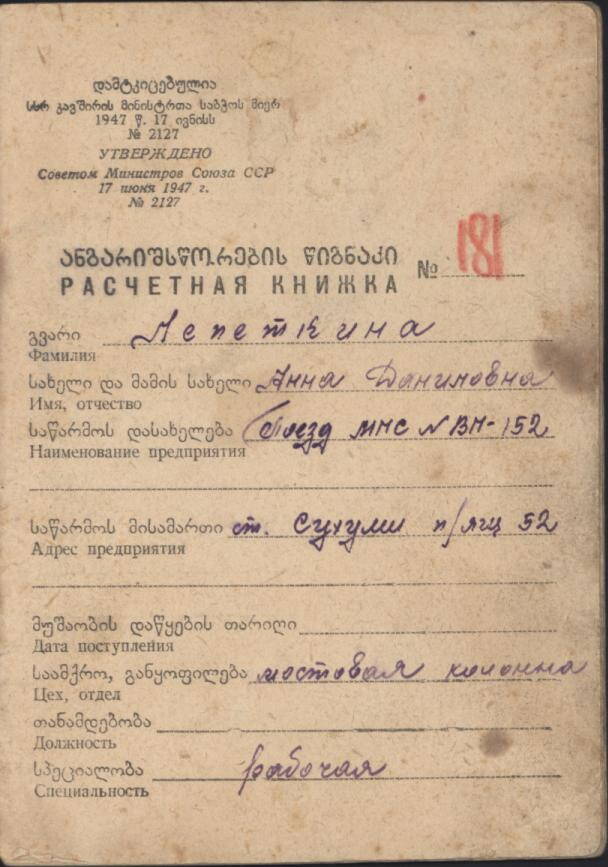 დამტკიცებულია
სსრ კავშირის მინისტრთა საბჭოს მიერ
1947 წ. 17 ივნისს
№ 2127
УТВЕРЖДЕНО
Советом Министров Союза ССР
17 июня 1947 г.
№ 2127
ანგარიშსწორების წიგნაკი
РАСЧЕТНАЯ КНИЖКА № 181
გვარი Лепеткина
Фамилия
სახელი და მამის სახელი Анна Даниловна
Имя, отчество
საწარმოს დასახელება Поезд МНС N ВН-152
Наименование предприятия
საწარმოს მისამართი ст. Сухуми п/ящ 52
Адрес предприятия
მუშაობის დაწყების თარიღი
Дата поступления
საამქრო, განყოფილება мостовая колонна
Цех, отдел
თანამდებობა
Должность
სპეციალობა рабочая
Специальность